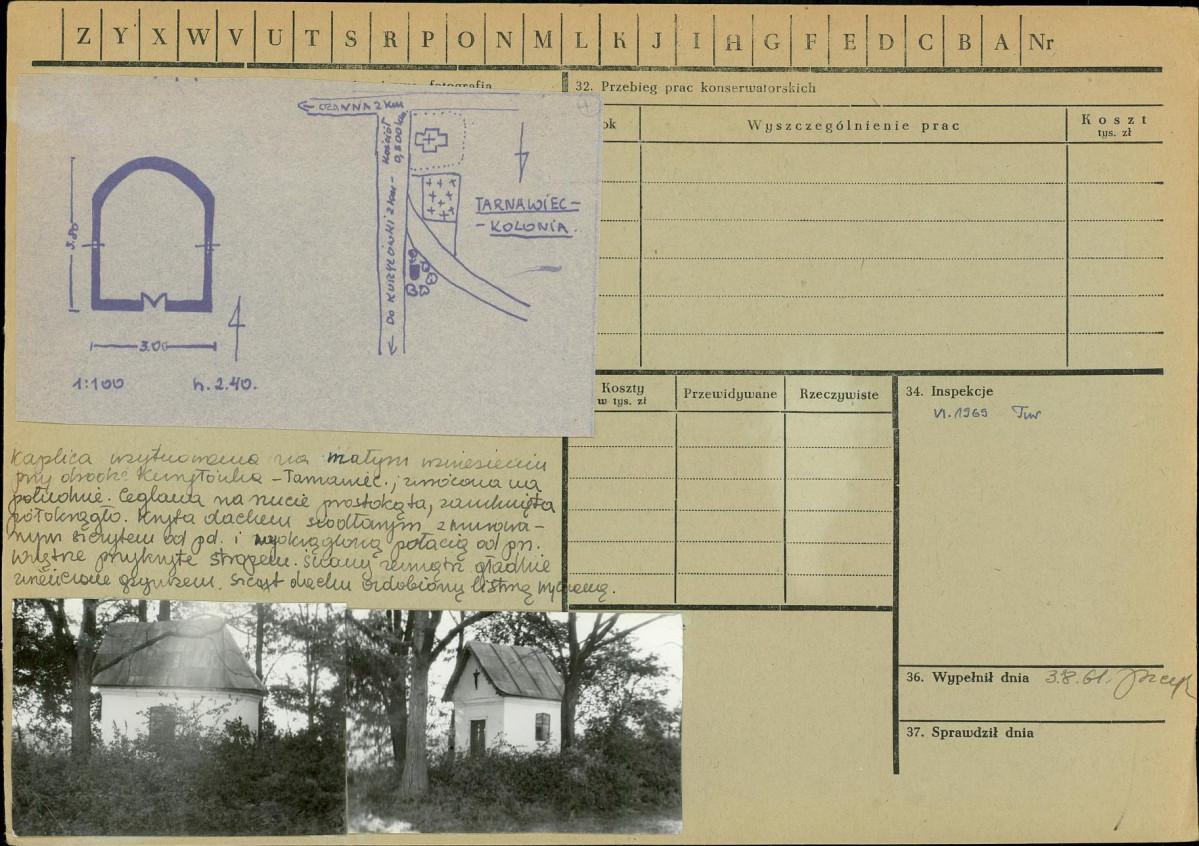 Z Y X W V U T S R P O N M L K J I H G F E D C B A Nr
fotografia
32. Przebieg prac konserwatorskich
ok
Wyszczególnienie prac
Koszt
tys. zł
← OŻANNA 2 KM
KOŚCIÓŁ
0,800 km
← DO KURYŁÓWKI 2 KM -
TARNAWIEC -
- KOLONIA.
3.80
3.00
1:100 h. 2.40.
Koszty
w tys. zł
Przewidywane
Rzeczywiste
34. Inspekcje
VI.1969
Kaplica usytuowana na małym wzniesieniu
przy drodze Kuryłówka - Tarnawiec., zwrócona na
południe. Ceglana na rzucie prostokąta, zamknięta
półokrągło. Kryta dachem siodłanym, z murowa-
nym szczytem od pd. i wyokrągloną połacią od pn.
Wnętrze przykryte stropem. Ściany zewnątrz gładkie
zwieńczone gzymsem. Szczyt dachu ozdobiony listwą
36. Wypełnił dnia 3.8.61.
37. Sprawdził dnia